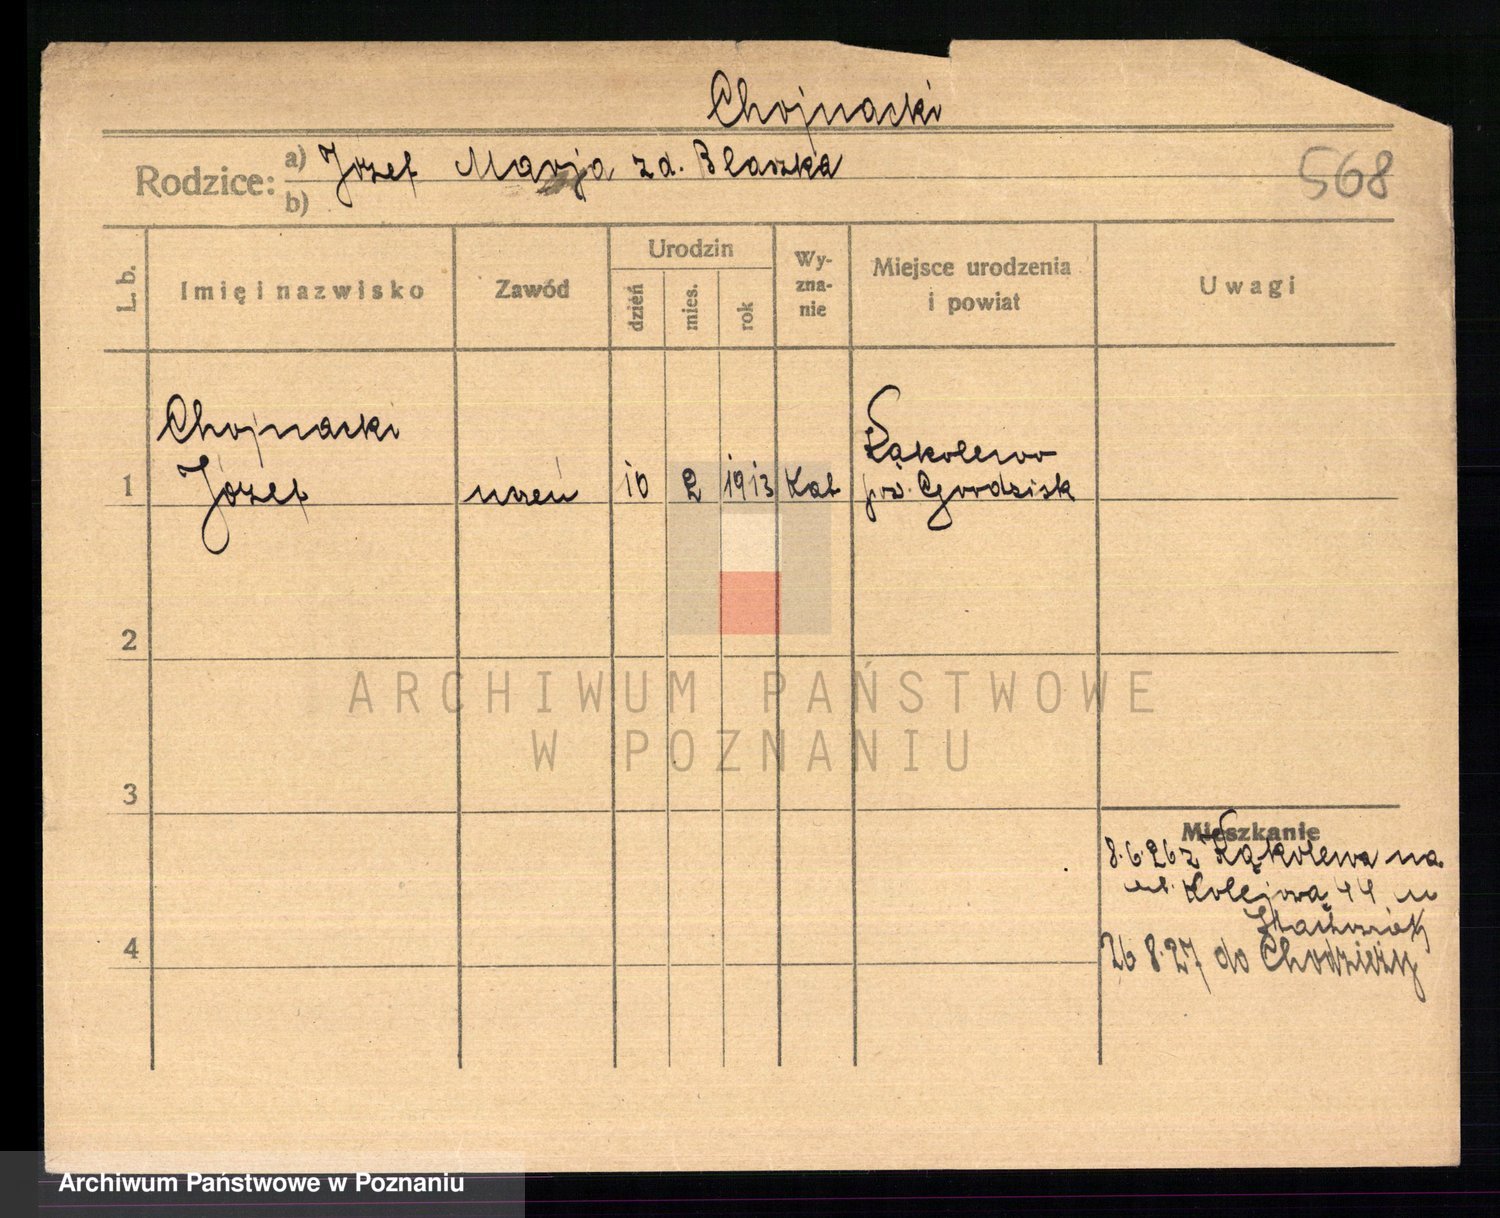 Chojnacki
Rodzice: a) Józef Marja zd. Blaszka
b)
568
L. b.
Imię i nazwisko
Zawód
Urodzin
dzień
mies.
rok
Wy-
zna-
nie
Miejsce urodzenia
i powiat
Uwagi
Chojnacki
1 Józef uczeń 10 2 1913 Kat Rąkolewo
pow. Grodzisk
2
3
4
Mieszkanie
8.6.26 z Rąkolewa na
ul. Kolejową 44 u
26 8.27 do Chodzieży
ARCHIWUM PAŃSTWOWE
W POZNANIU
Archiwum Państwowe w Poznaniu